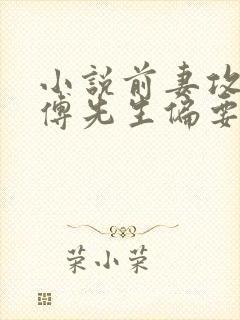 小説前妻攻
傅先生偏要
荣小荣